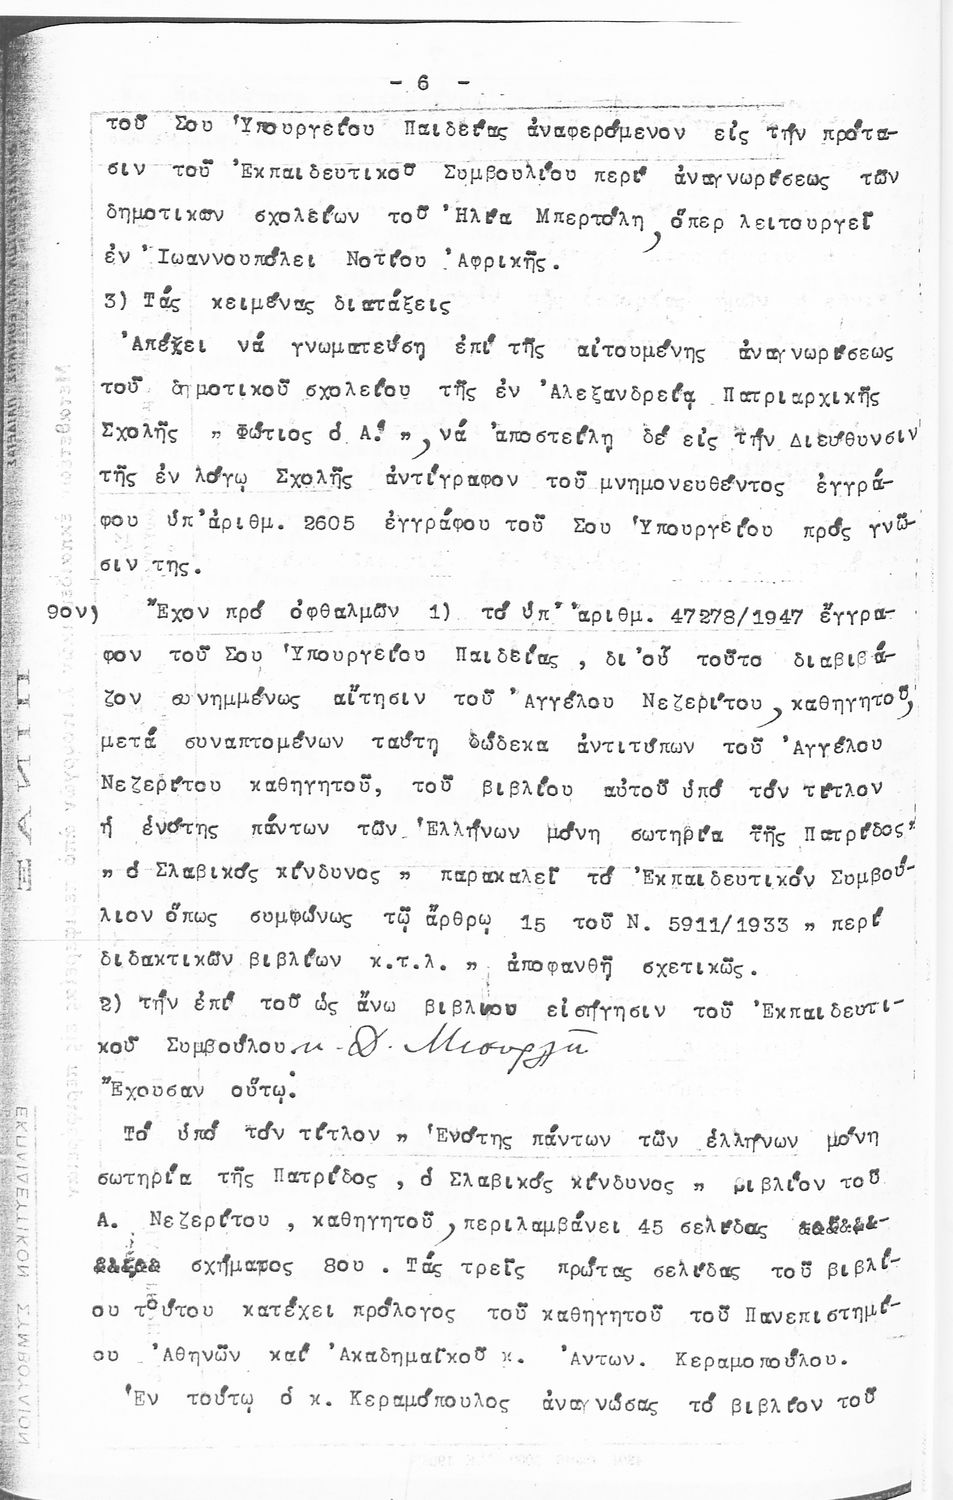 - 6 -
τοῦ Σου Ὑπουργείου Παιδείας ἀναφερόμενον εἰς τήν πρότα-
σιν τοῦ Ἐκπαιδευτικοῦ Συμβουλίου περί ἀναγνωρίσεως τῶν
δημοτικῶν σχολείων τοῦ Ἠλία Μπερτόλη, ὅπερ λειτουργεῖ
ἐν Ἰωαννουπόλει Νοτίου Ἀφρικῆς.
3) Τάς κειμένας διατάξεις
Ἀπέχει νά γνωματεύσῃ ἐπί τῆς αἰτουμένης ἀναγνωρίσεως
τοῦ δημοτικοῦ σχολείου τῆς ἐν Ἀλεξανδρείᾳ Πατριαρχικῆς
Σχολῆς „ Φώτιος ὁ Α! „, νά ἀποστείλῃ δέ εἰς τήν Διεύθυνσιν
τῆς ἐν λόγῳ Σχολῆς ἀντίγραφον τοῦ μνημονευθέντος ἐγγρά-
φου ὑπ' ἀριθμ. 2605 ἐγγράφου τοῦ Σου Ὑπουργείου πρός γνῶ-
σιν της.
9ον) Ἔχον πρό ὀφθαλμῶν 1) τό ὑπ' ἀριθμ. 47278/1947 ἔγγρα-
φον τοῦ Σου Ὑπουργείου Παιδείας, δι' οὗ τοῦτο διαβιβά-
ζον συνημμένως αἴτησιν τοῦ Ἀγγέλου Νεζερίτου, καθηγητοῦ,
μετά συναπτομένων ταύτῃ δώδεκα ἀντιτύπων τοῦ Ἀγγέλου
Νεζερίτου καθηγητοῦ, τοῦ βιβλίου αὐτοῦ ὑπό τόν τίτλον
ἡ ἑνότης πάντων τῶν Ἑλλήνων μόνη σωτηρία τῆς Πατρίδος"
„ ὁ Σλαβικός κίνδυνος „ παρακαλεῖ τό Ἐκπαιδευτικόν Συμβού-
λιον ὅπως συμφώνως τῷ ἄρθρῳ 15 τοῦ Ν. 5911/1933 „ περί
διδακτικῶν βιβλίων κ.τ.λ. „ ἀποφανθῇ σχετικῶς.
2) τήν ἐπί τοῦ ὡς ἄνω βιβλίου εἰσήγησιν τοῦ Ἐκπαιδευτι-
κοῦ Συμβούλου κ. Δ.
Ἔχουσαν οὕτω:
Τό ὑπό τόν τίτλον „ Ἑνότης πάντων τῶν ἑλλήνων μόνη
σωτηρία τῆς Πατρίδος, ὁ Σλαβικός κίνδυνος „ βιβλίον τοῦ
Α. Νεζερίτου, καθηγητοῦ, περιλαμβάνει 45 σελίδας
σχήματος 8ου. Τάς τρεῖς πρώτας σελίδας τοῦ βιβλί-
ου τούτου κατέχει πρόλογος τοῦ καθηγητοῦ τοῦ Πανεπιστημί-
ου Ἀθηνῶν καί Ἀκαδημαϊκοῦ κ. Ἀντων. Κεραμοπούλου.
Ἐν τούτῳ ὁ κ. Κεραμόπουλος ἀναγνώσας τό βιβλίον τοῦ